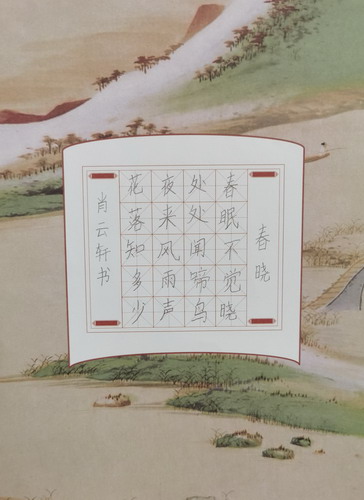 春晓
春眠不觉晓
处处闻啼鸟
夜来风雨声
花落知多少
肖云轩书